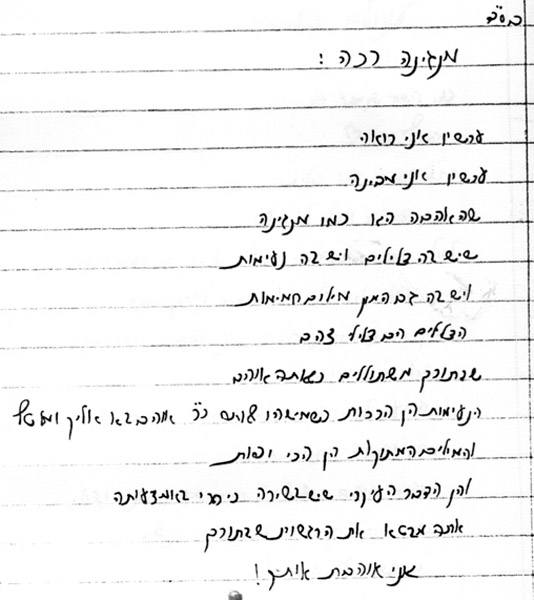 בס"ד
מנגינה רכה!
עכשיו אני רואה
עכשיו אני מבינה
שהאהבה הנו כמו מנגינה
שיש בה צלילים ויש בה נעימות
ויש בה גם המון מילים חמימות
הצלילים הם צלילי זהב
שבתוכך משתוללים כשאתה אוהב
הנעימות הן הרכות כשמישהו שאתה כ"כ אוהב בא אליך
והמילים המתוקות הן הכי יפות
והן הדבר העיקרי שיש בשירה כי הרי באמצעותה
אתה מבטא את הרגשות שבתוכך
אני אוהבת אותך!